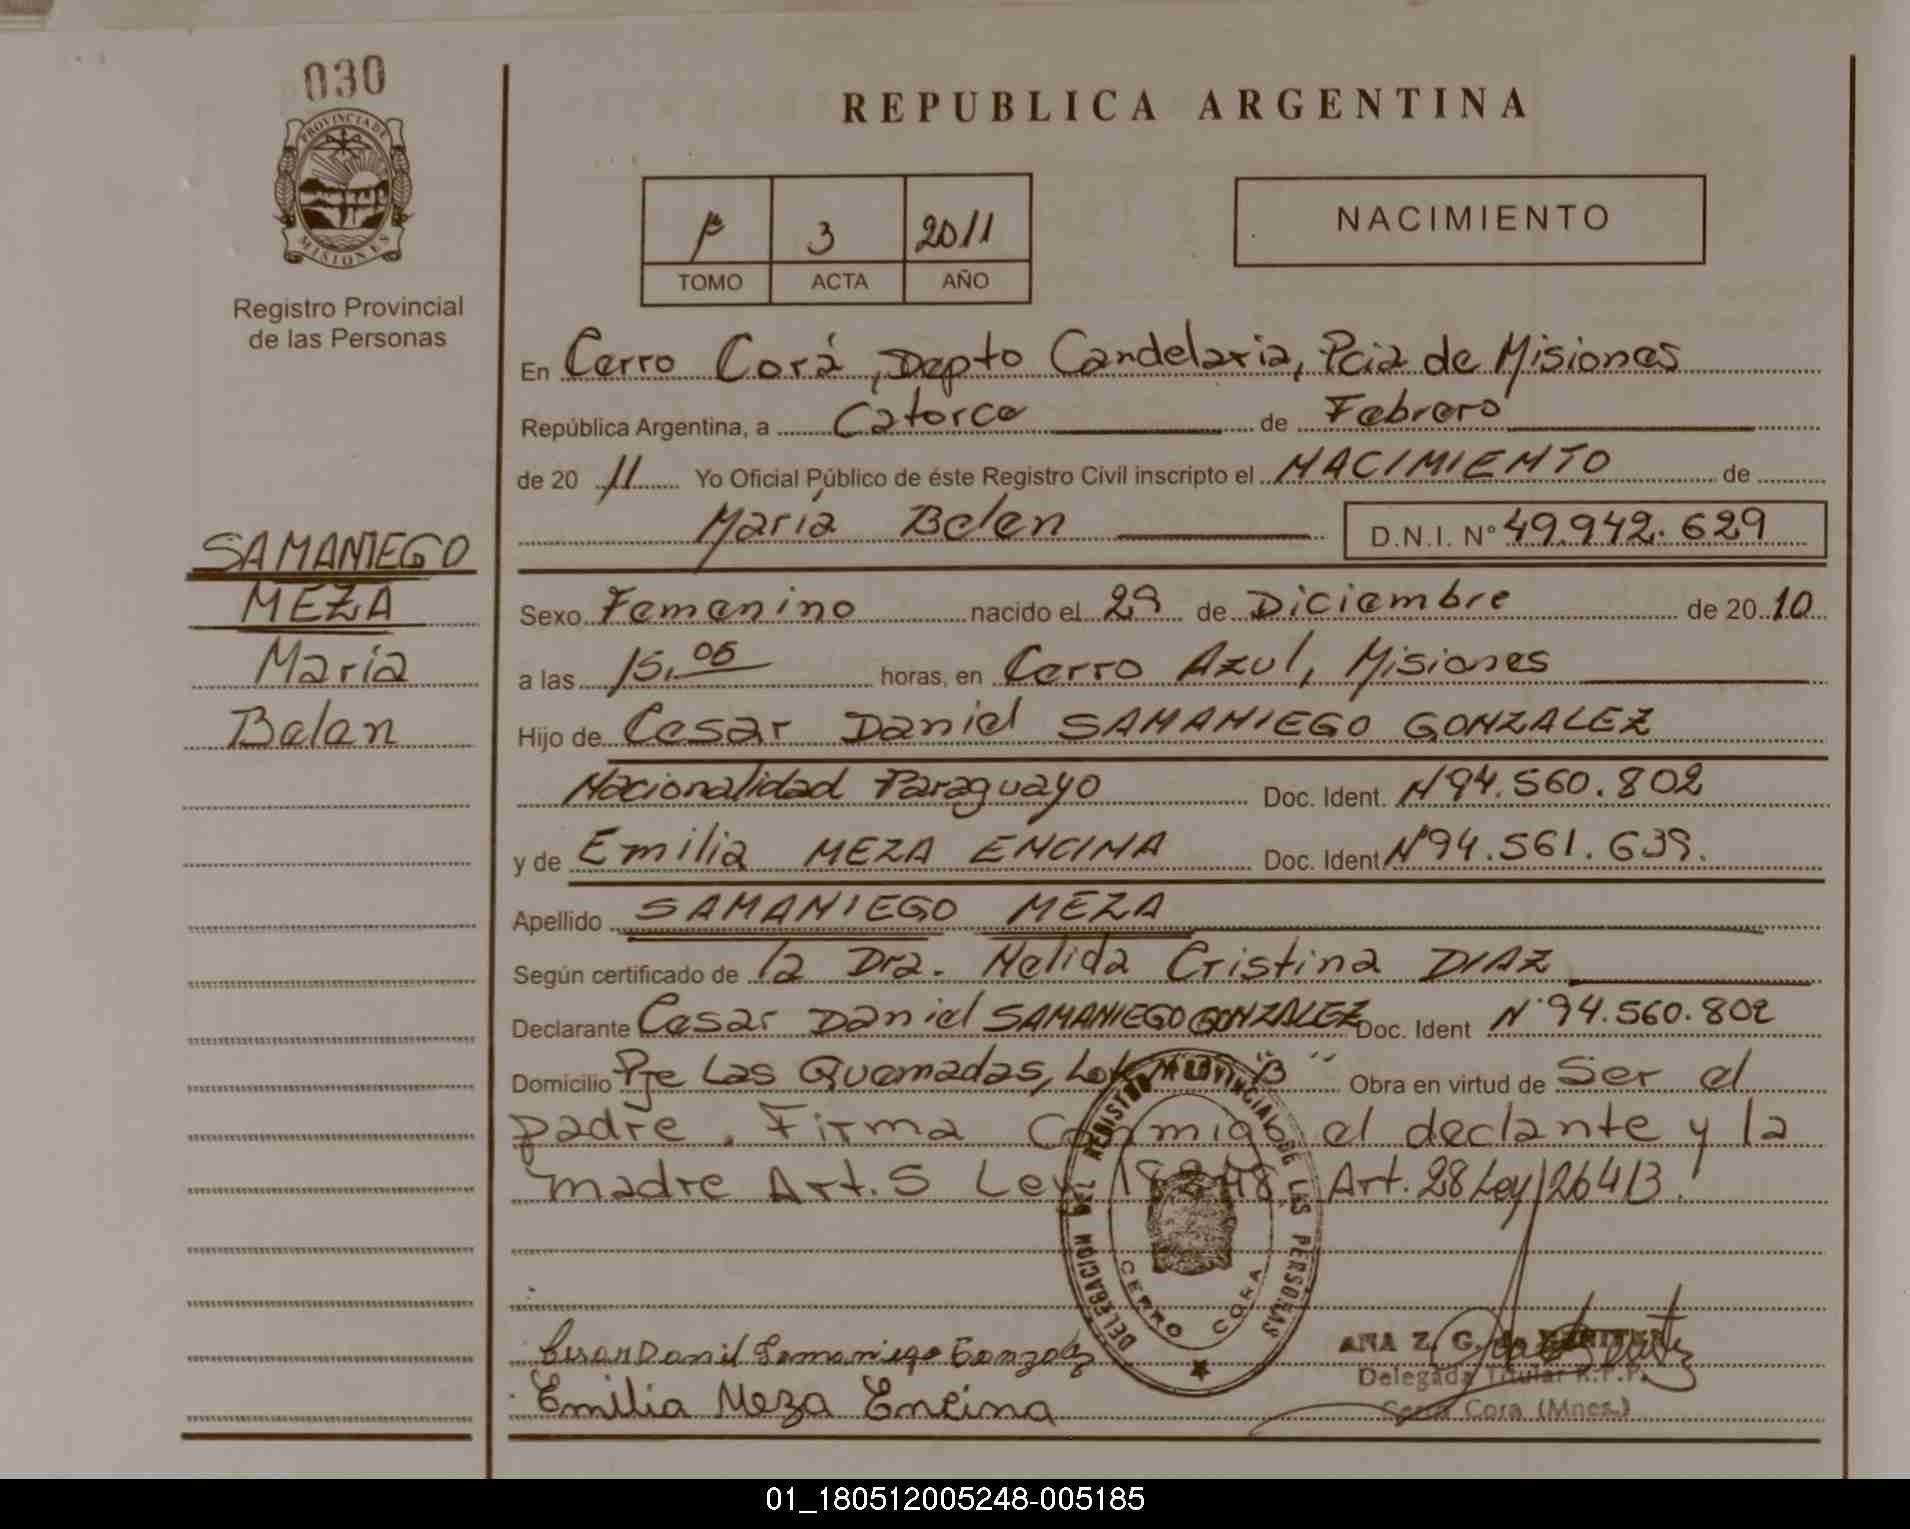 030
PROVINCIA DE
MISIONES
Registro Provincial
de las Personas
REPUBLICA ARGENTINA
3 2011
TOMO ACTA AÑO
NACIMIENTO
En Cerro Corá, Depto Candelaria, Pcia de Misiones
República Argentina, a Catorce de Febrero
de 20 11 Yo Oficial Público de éste Registro Civil inscripto el NACIMIENTO de
María Belen D.N.I. N° 49.942.629
SAMANIEGO
MEZA
María
Belen
Sexo Femenino nacido el 29 de Diciembre de 20 10
a las 15,05 horas, en Cerro Azul, Misiones
Hijo de Cesar Daniel SAMANIEGO GONZALEZ
Nacionalidad Paraguayo Doc. Ident. N° 94.560.802
y de Emilia MEZA ENCINA Doc. Ident N° 94.561.639.
Apellido SAMANIEGO MEZA
Según certificado de la Dra. Nelida Cristina DIAZ
Declarante Cesar Daniel SAMANIEGO GONZALEZ Doc. Ident N° 94.560.802
Domicilio Pje Las Quemadas, Lote "B" Obra en virtud de Ser el
padre. Firma Conmigo el declante y la
madre Art. 5 Ley 18.248, Art. 28 Ley 26413.
DELEGACION DEL REGISTRO PROVINCIAL DE LAS PERSONAS
CERRO CORA
Cesar Danil Samaniego Gonzalez
Emilia Meza Encina
ANA Z. G. de
Delegada Titular R.P.P.
Cerro Cora (Mnes.)
01_180512005248-005185